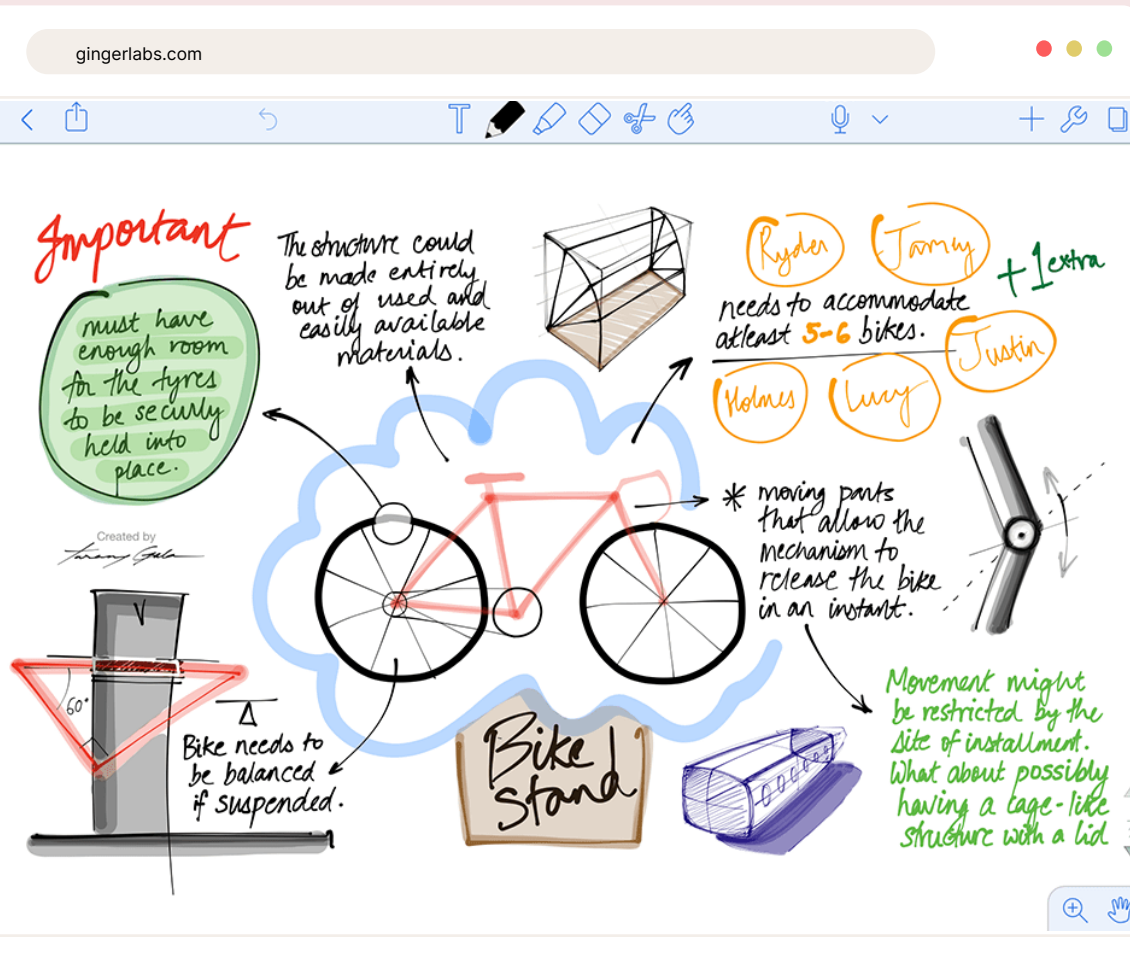 gingerlabs.com
Important
must have
enough room
for the tyres
to be securly
held into
place.
The structure could
be made entirely
out of used and
easily available
materials.
Ryder
+1 extra
needs to accommodate
atleast 5-6 bikes.
Justin
Holmes
Lucy
* moving parts
that allow the
mechanism to
release the bike
in an instant.
Created by
60°
Bike needs to
be balanced
if suspended.
Bike
stand
Movement might
be restricted by the
site of installment.
What about possibly
having a cage-like
structure with a lid